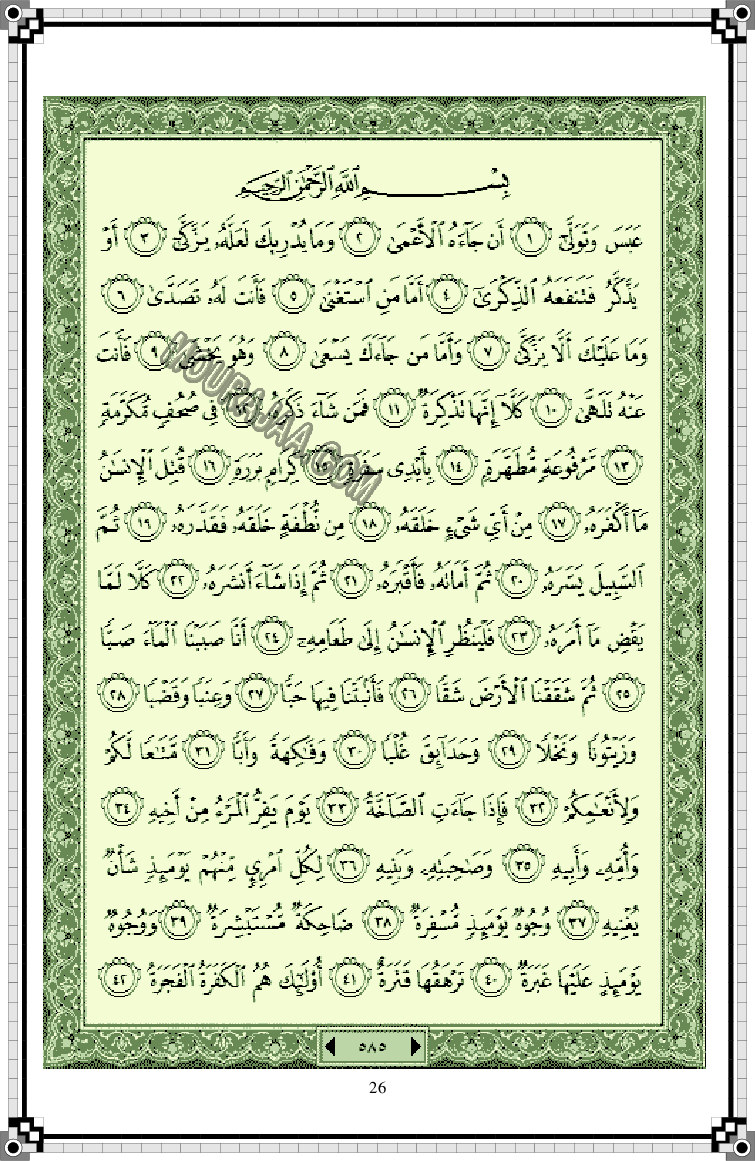 بِسْمِ ٱللَّهِ ٱلرَّحْمَٰنِ ٱلرَّحِيمِ
عَبَسَ وَتَوَلَّىٰٓ ١ أَن جَآءَهُ ٱلْأَعْمَىٰ ٢ وَمَا يُدْرِيكَ لَعَلَّهُۥ يَزَّكَّىٰٓ ٣ أَوْ
يَذَّكَّرُ فَتَنفَعَهُ ٱلذِّكْرَىٰٓ ٤ أَمَّا مَنِ ٱسْتَغْنَىٰ ٥ فَأَنتَ لَهُۥ تَصَدَّىٰ ٦
وَمَا عَلَيْكَ أَلَّا يَزَّكَّىٰ ٧ وَأَمَّا مَن جَآءَكَ يَسْعَىٰ ٨ وَهُوَ يَخْشَىٰ ٩ فَأَنتَ
عَنْهُ تَلَهَّىٰ ١٠ كَلَّآ إِنَّهَا تَذْكِرَةٌ ١١ فَمَن شَآءَ ذَكَرَهُۥ ١٢ فِى صُحُفٍ مُّكَرَّمَةٍ
١٣ مَّرْفُوعَةٍ مُّطَهَّرَةٍۭ ١٤ بِأَيْدِى سَفَرَةٍ ١٥ كِرَامٍۭ بَرَرَةٍ ١٦ قُتِلَ ٱلْإِنسَٰنُ
مَآ أَكْفَرَهُۥ ١٧ مِنْ أَىِّ شَىْءٍ خَلَقَهُۥ ١٨ مِن نُّطْفَةٍ خَلَقَهُۥ فَقَدَّرَهُۥ ١٩ ثُمَّ
ٱلسَّبِيلَ يَسَّرَهُۥ ٢٠ ثُمَّ أَمَاتَهُۥ فَأَقْبَرَهُۥ ٢١ ثُمَّ إِذَا شَآءَ أَنشَرَهُۥ ٢٢ كَلَّا لَمَّا
يَقْضِ مَآ أَمَرَهُۥ ٢٣ فَلْيَنظُرِ ٱلْإِنسَٰنُ إِلَىٰ طَعَامِهِۦٓ ٢٤ أَنَّا صَبَبْنَا ٱلْمَآءَ صَبًّا
٢٥ ثُمَّ شَقَقْنَا ٱلْأَرْضَ شَقًّا ٢٦ فَأَنۢبَتْنَا فِيهَا حَبًّا ٢٧ وَعِنَبًا وَقَضْبًا ٢٨
وَزَيْتُونًا وَنَخْلًا ٢٩ وَحَدَآئِقَ غُلْبًا ٣٠ وَفَٰكِهَةً وَأَبًّا ٣١ مَّتَٰعًا لَّكُمْ
وَلِأَنْعَٰمِكُمْ ٣٢ فَإِذَا جَآءَتِ ٱلصَّآخَّةُ ٣٣ يَوْمَ يَفِرُّ ٱلْمَرْءُ مِنْ أَخِيهِ ٣٤
وَأُمِّهِۦ وَأَبِيهِ ٣٥ وَصَٰحِبَتِهِۦ وَبَنِيهِ ٣٦ لِكُلِّ ٱمْرِئٍ مِّنْهُمْ يَوْمَئِذٍ شَأْنٌ
يُغْنِيهِ ٣٧ وُجُوهٌ يَوْمَئِذٍ مُّسْفِرَةٌ ٣٨ ضَاحِكَةٌ مُّسْتَبْشِرَةٌ ٣٩ وَوُجُوهٌ
يَوْمَئِذٍ عَلَيْهَا غَبَرَةٌ ٤٠ تَرْهَقُهَا قَتَرَةٌ ٤١ أُو۟لَٰٓئِكَ هُمُ ٱلْكَفَرَةُ ٱلْفَجَرَةُ ٤٢
٥٨٥
26